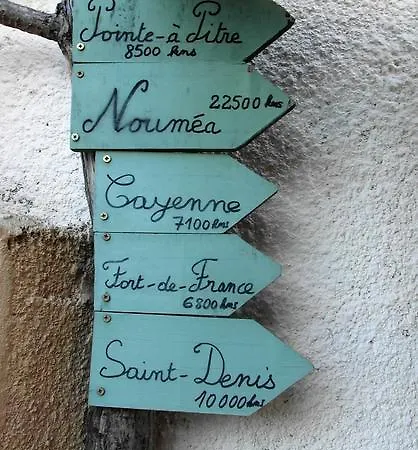 Pointe-à Pitre
8500 kms
22500 kms
Nouméa
Cayenne
7100 kms
Fort-de-France
6800 kms
Saint-Denis
10000 kms